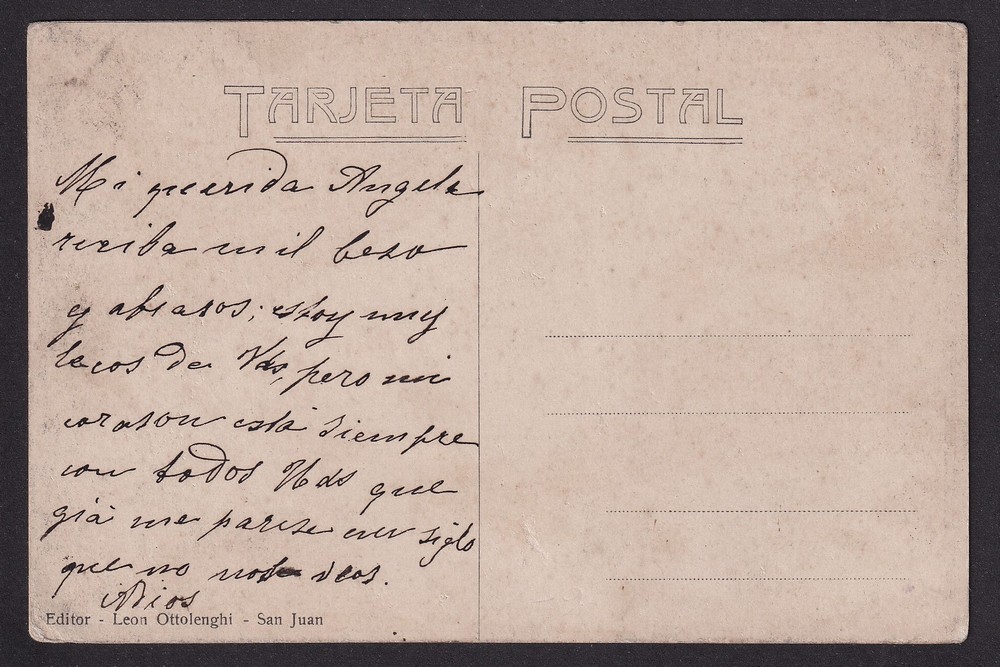 TARJETA POSTAL
Mi querida Angela
reciba mil beso
y abrasos; estoy muy
lecos de Vds, pero mi
corason está siempre
con todos Vds que
già me parese un siglo
que no nos veos.
Adios
Editor - Leon Ottolenghi - San Juan